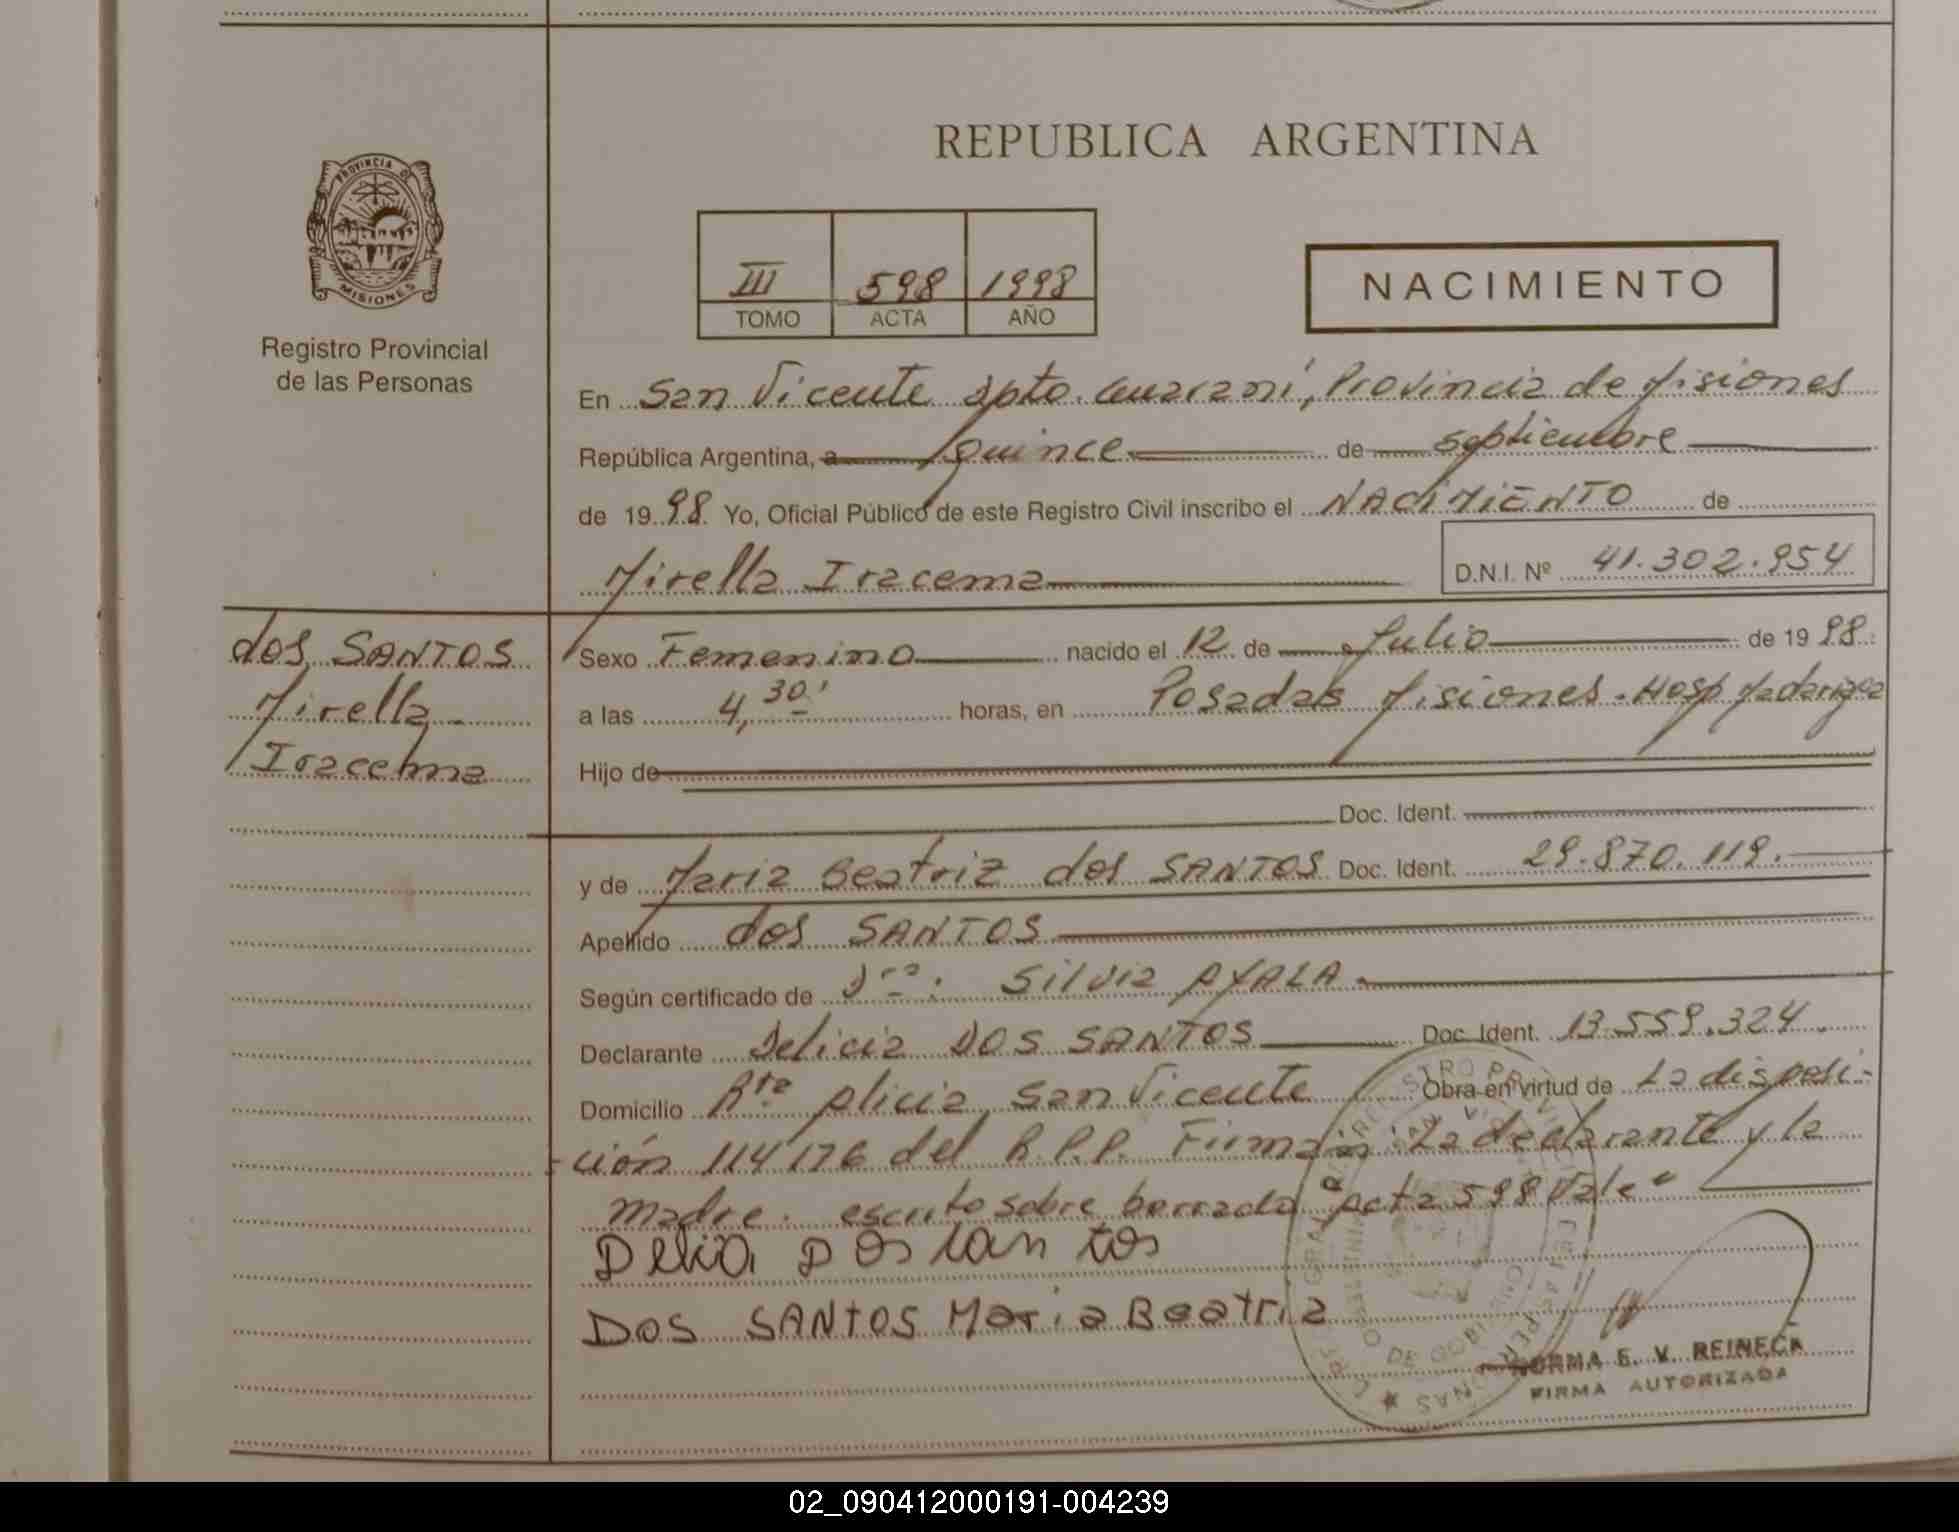 REPUBLICA ARGENTINA
PROVINCIA DE
MISIONES
Registro Provincial
de las Personas
III 598 1998
TOMO ACTA AÑO
NACIMIENTO
En San Vicente Dpto. Guaraní, Provincia de Misiones
República Argentina, a quince de septiembre
de 1998 Yo, Oficial Público de este Registro Civil inscribo el NACIMIENTO de
Mirella Iracema D.N.I. Nº 41.302.954
dos SANTOS
Mirella
Iracema
Sexo Femenino nacido el 12 de Julio de 1998
a las 4,30' horas, en Posadas Misiones - Hosp Madariaga
Hijo de
Doc. Ident.
y de Maria Beatriz dos SANTOS Doc. Ident. 29.870.119.
Apellido dos SANTOS
Según certificado de Dra. Silvia AYALA
Declarante Delicia DOS SANTOS Doc. Ident. 13.559.324
Domicilio Bta Alicia San Vicente Obra en virtud de La disposi-
-ción 114/76 del R.P.P. Firman: La declarante y la
madre. escrito sobre borrado "acta 598 Vale"
DOS SANtOS Maria Beatriz
NORMA E. V. REINECK
FIRMA AUTORIZADA
02_090412000191-004239